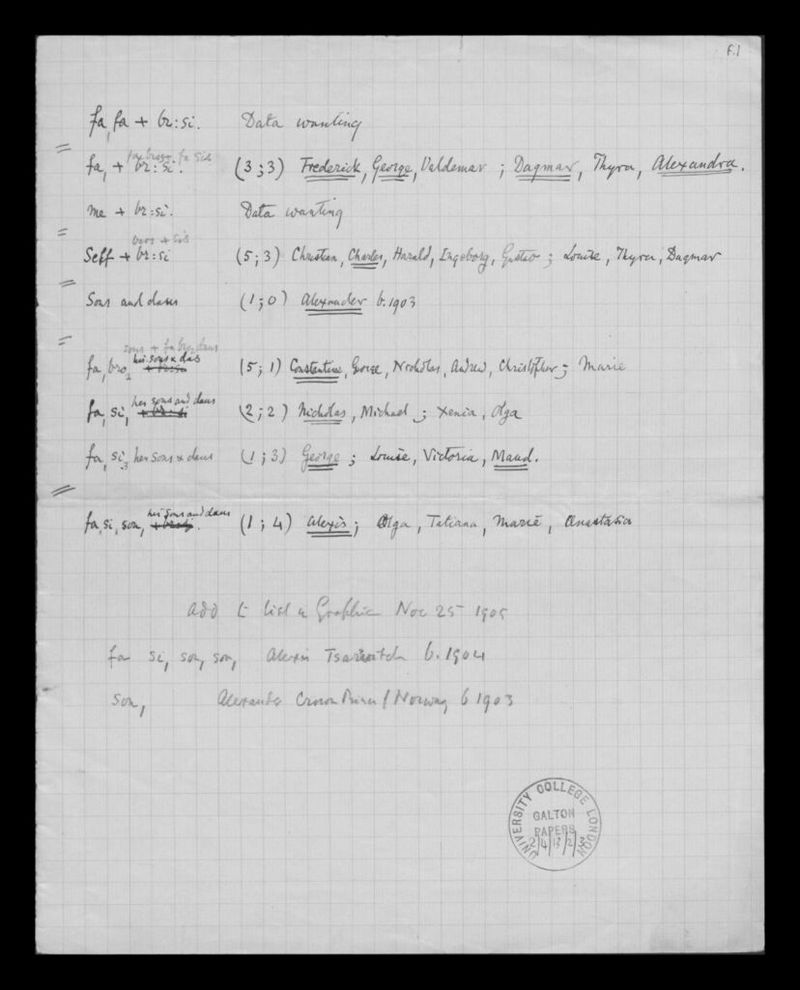 F.1
fa, fa + br: si. Data wanting
fa bros + fa sis
fa, + br: si. (3;3) Frederick, George, Valdemar ; Dagmar, Thyra, Alexandra.
me + br: si. Data wanting
bros + sis
Self + br: si (5;3) Christian, Charles, Harald, Ingeborg, Gustav ; Louise, Thyra, Dagmar
Sons and daus (1;0) Alexander b. 1903
sons + fa bro, daus
his sons & daus
fa, bro, (5;1) Constantine, George, Nicholas, Andrew, Christopher ; Marie
her sons and daus
fa, si, + br: si (2;2) Nicholas, Michael ; Xenia, Olga
fa, si, her sons & daus (1;3) George ; Louise, Victoria, Maud.
his sons and daus
fa, si, son, (1;4) Alexis ; Olga, Tatiana, Marie, Anastasia
Add to list in Graphic Nov 25 1905
fa si, son, son, Alexis Tsarevitch b. 1904
Son, Alexander Crown Prince / Norway b 1903
UNIVERSITY COLLEGE LONDON
GALTON
PAPERS
2/4/13/2/3